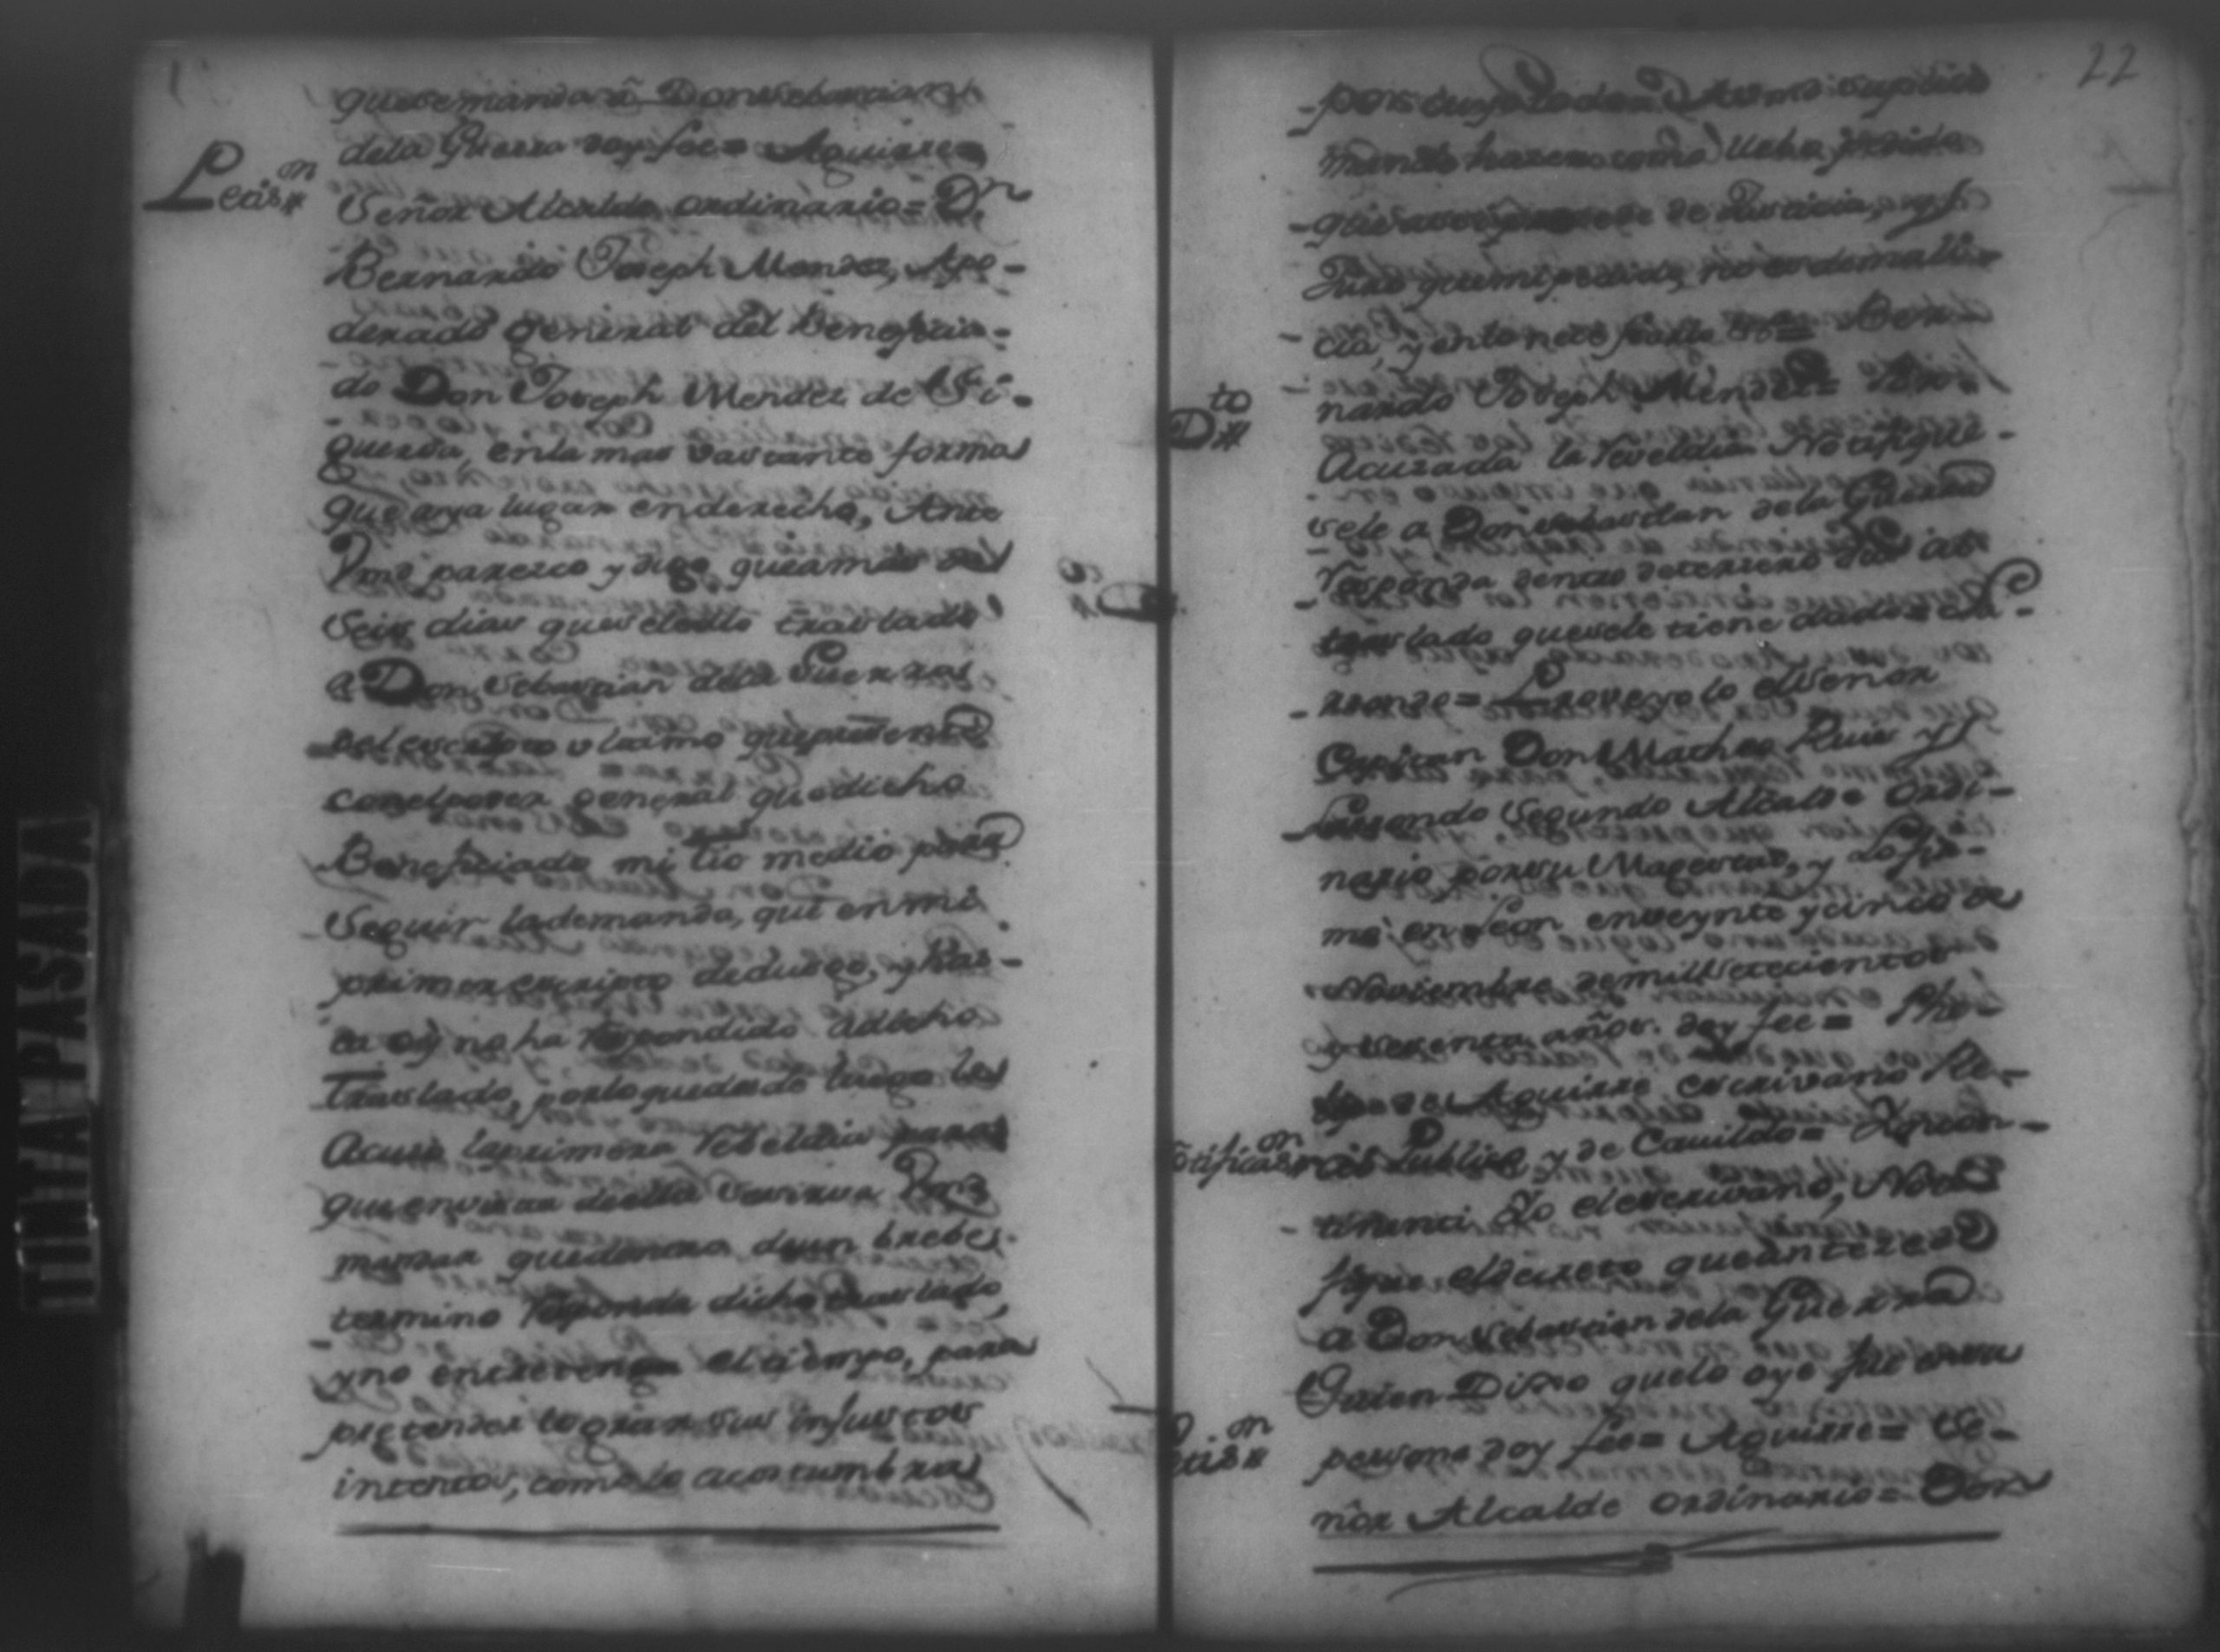 que se manda a Don Sebastian
dela Guerra doy fee= Aguirre=
Petis.on
Señor Alcalde ordinario= D.n
Bernardo Joseph Mendez, Apo-
derado general del Beneficia-
do Don Joseph Mendez de Si-
guenza, enla mas bastante forma
que aya lugar enderecho, Ante
Vmd paresco y digo que amas de
Seis dias que seledio traslado
a Don Sebastian dela Guerra
del escripto vltimo que presente
conelpoder general que dicho
Beneficiado mi tio medio para
Seguir lademanda, que enmi
primer escripto deduzgo, y has-
ta oy no ha respondido adicho
traslado, porlo quedesde luego le
Acuso laprimera rebeldia para
que envista deella sesirva Vmd
mandar quedentro deun brebe
termino responda dicho traslado,
yno entretenga el tiempo, para
pretender lograr sus injustos
intentos, como lo acostumbra
22
por cuyo todo= A Vmd suplico
mande hazer como llebo pedido
que es de Justicia, y
Juro quemi pedido, no es demali-
cia, y enlo nece sario &a= Ber-
nardo Joseph Mendez= Por
D.to
Acusada la reveldia Notifique-
sele a Don Sebastian dela Guerra
responda dentro detersero dia al
traslado quesele tiene dado=
= Proveyolo elSeñor
Capitan Don Matheo Ruiz y
Segundo Alcalde Ordi-
nario porsu Magestad, y Lo fir-
mó en Leon enveynte ycinco de
Noviembre demill Setecientos
y sesenta años. doy fee= Phe-
lipe de Aguirre escrivano Re-
Notificas.on
al Publico, y de Cavildo= Yncon-
tinenti Yo elescrivano, Noti-
fique eldecreto queantecede
a Don Sebastian dela Guerra
Quien Dixo quelo oye fue ensu
persona doy fee= Aguirre= Se-
Petis.on
ñor Alcalde ordinario= Don
TOTALPASADA